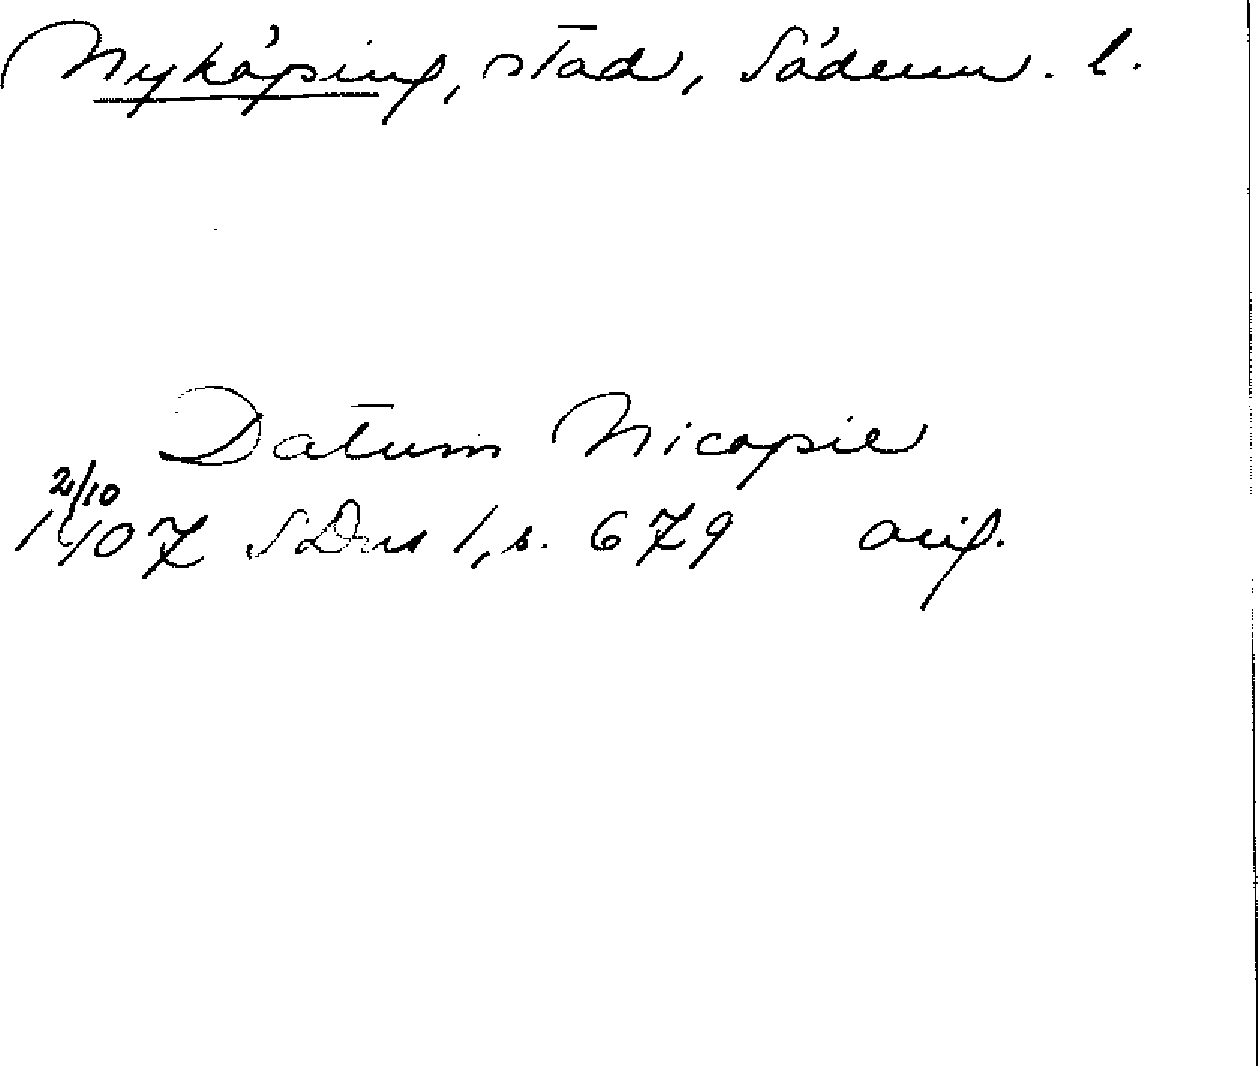 Nyköping, stad, Söderm. l.
Datum Nicopie
2/10
1407 SDns 1, s. 679 orig.